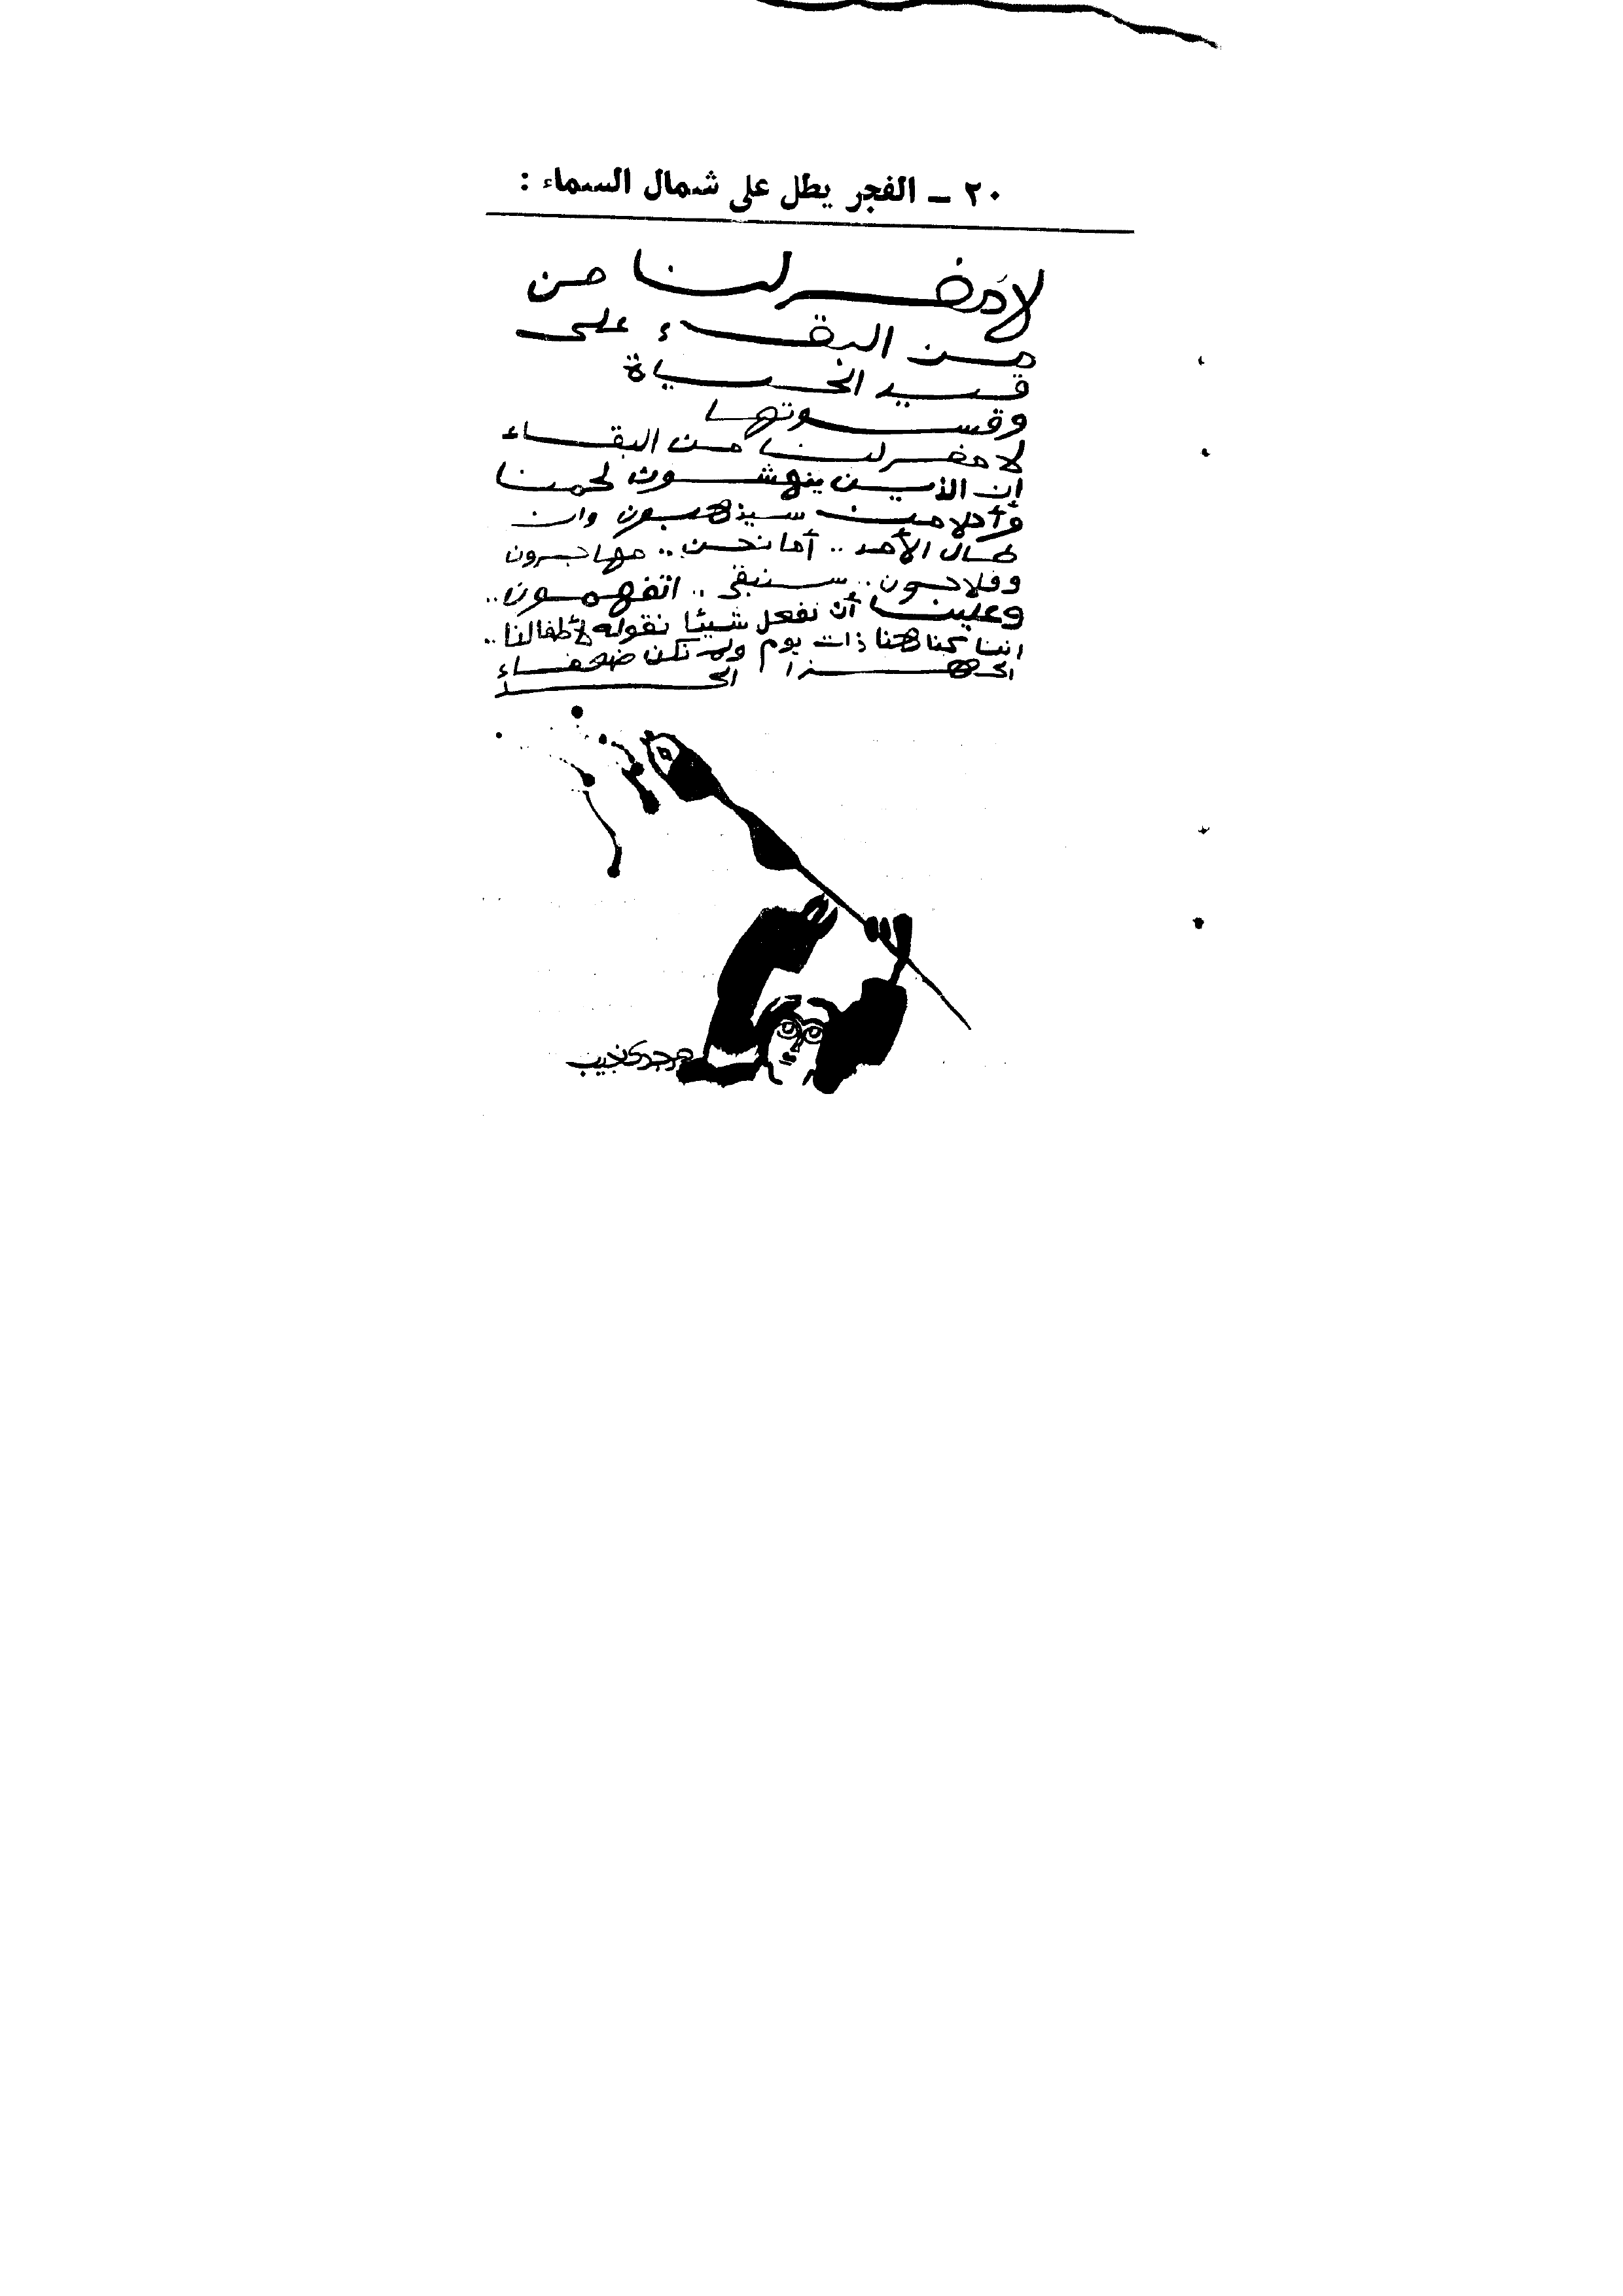 ٢٠ ــ الفجر يطل على شمال السماء :
لا مفر لنا من
من البقاء على
قيد الحياة
وقسوتها
لا مفر لنا من البقاء
ان الذين ينهشون لحمنا
وأحلامنا سيذهبون وان
طال الأمد .. أما نحن .. مهاجرون
وفلاحون .. سنبقى .. اتفهمون ..
وعلينا أن نفعل شيئا نقوله لأطفالنا ..
اننا كنا هنا ذات يوم ولم نكن ضعفاء
الى هذا الحد
مجدى نجيب